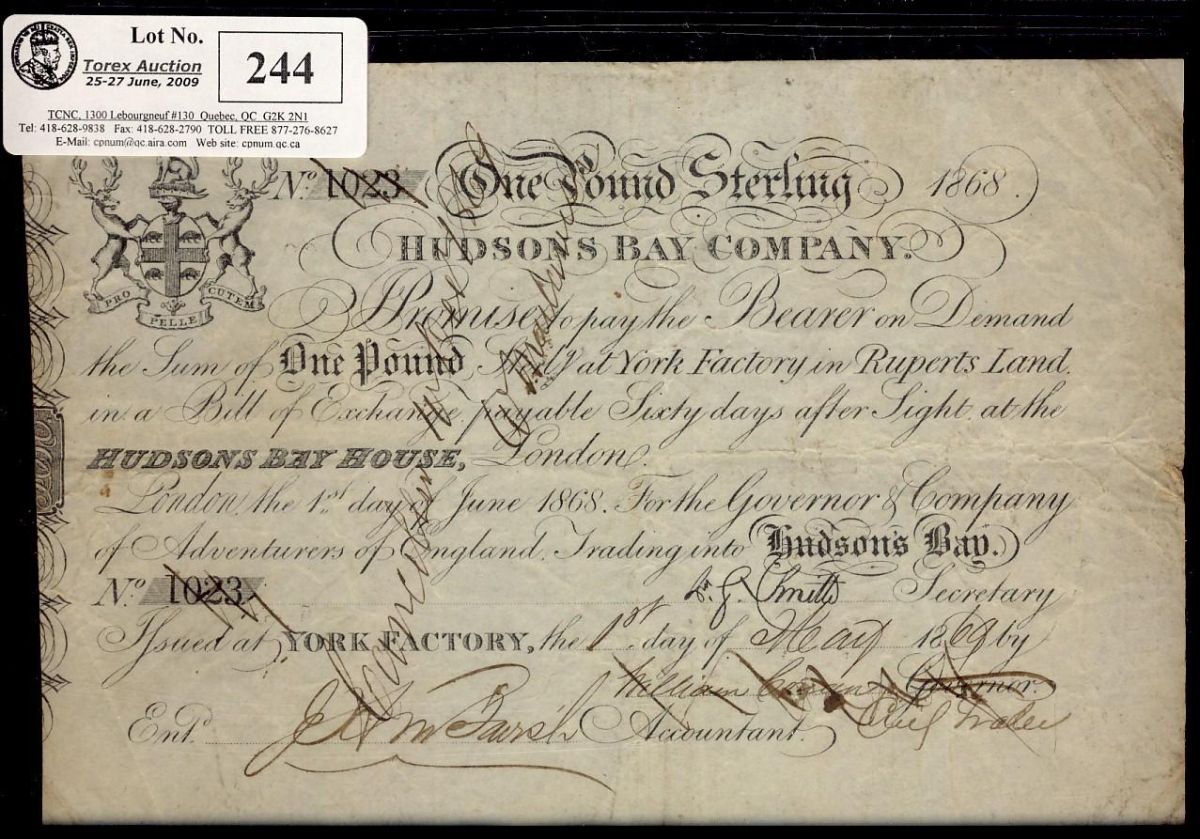 Lot No.
244
Torex Auction
25-27 June, 2009
TCNC, 1300 Lebourgneuf #130 Quebec, QC G2K 2N1
Tel: 418-628-9838 Fax: 418-628-2790 TOLL FREE 877-276-8627
E-Mail: cpnum@qc.aira.com Web site: cpnum.qc.ca
No. 1023 One Pound Sterling 1868.
HUDSONS BAY COMPANY.
PRO PELLE CUTEM
I Promise to pay the Bearer on Demand
the Sum of One Pound at York Factory in Ruperts Land.
in a Bill of Exchange payable Sixty days after Sight at the
HUDSONS BAY HOUSE, London.
London, the 1st day of June 1868. For the Governor & Company
of Adventurers of England, Trading into Hudson's Bay.
No. 1023 Smith Secretary
Issued at YORK FACTORY, the 1st day of May 1869 by
William Governor.
Chief Trader
Ent. Accountant.
Cancelled